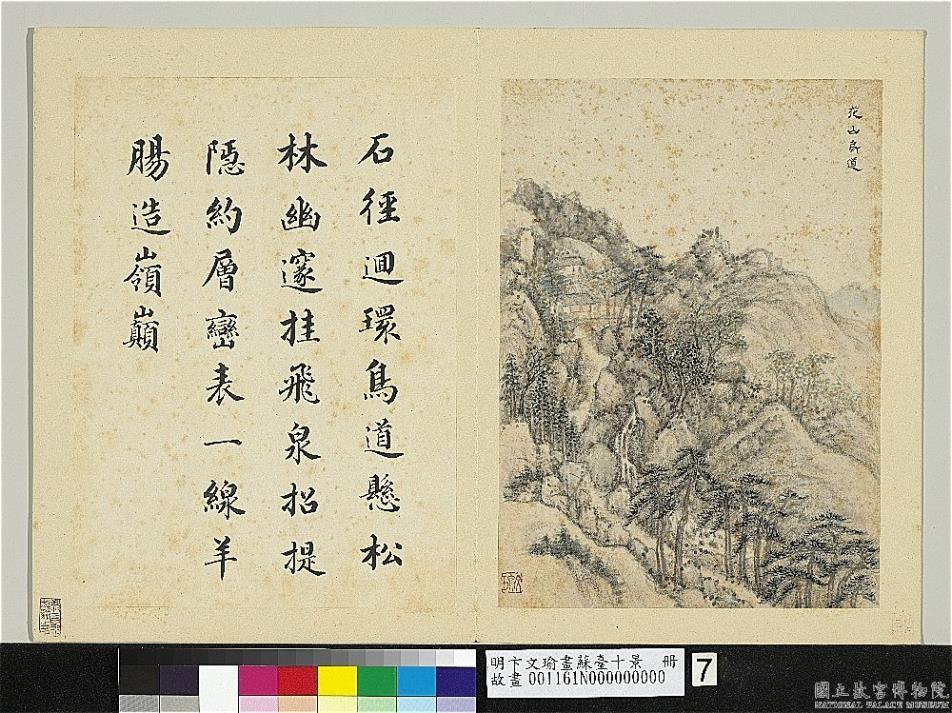 花山鳥道
石徑迴環鳥道懸松
林幽邃挂飛泉招提
隱約層巒表一線羊
腸造嶺巔
明卞文瑜畫蘇臺十景 冊
故畫001161N000000000
7
國立故宮博物院
NATIONAL PALACE MUSEUM